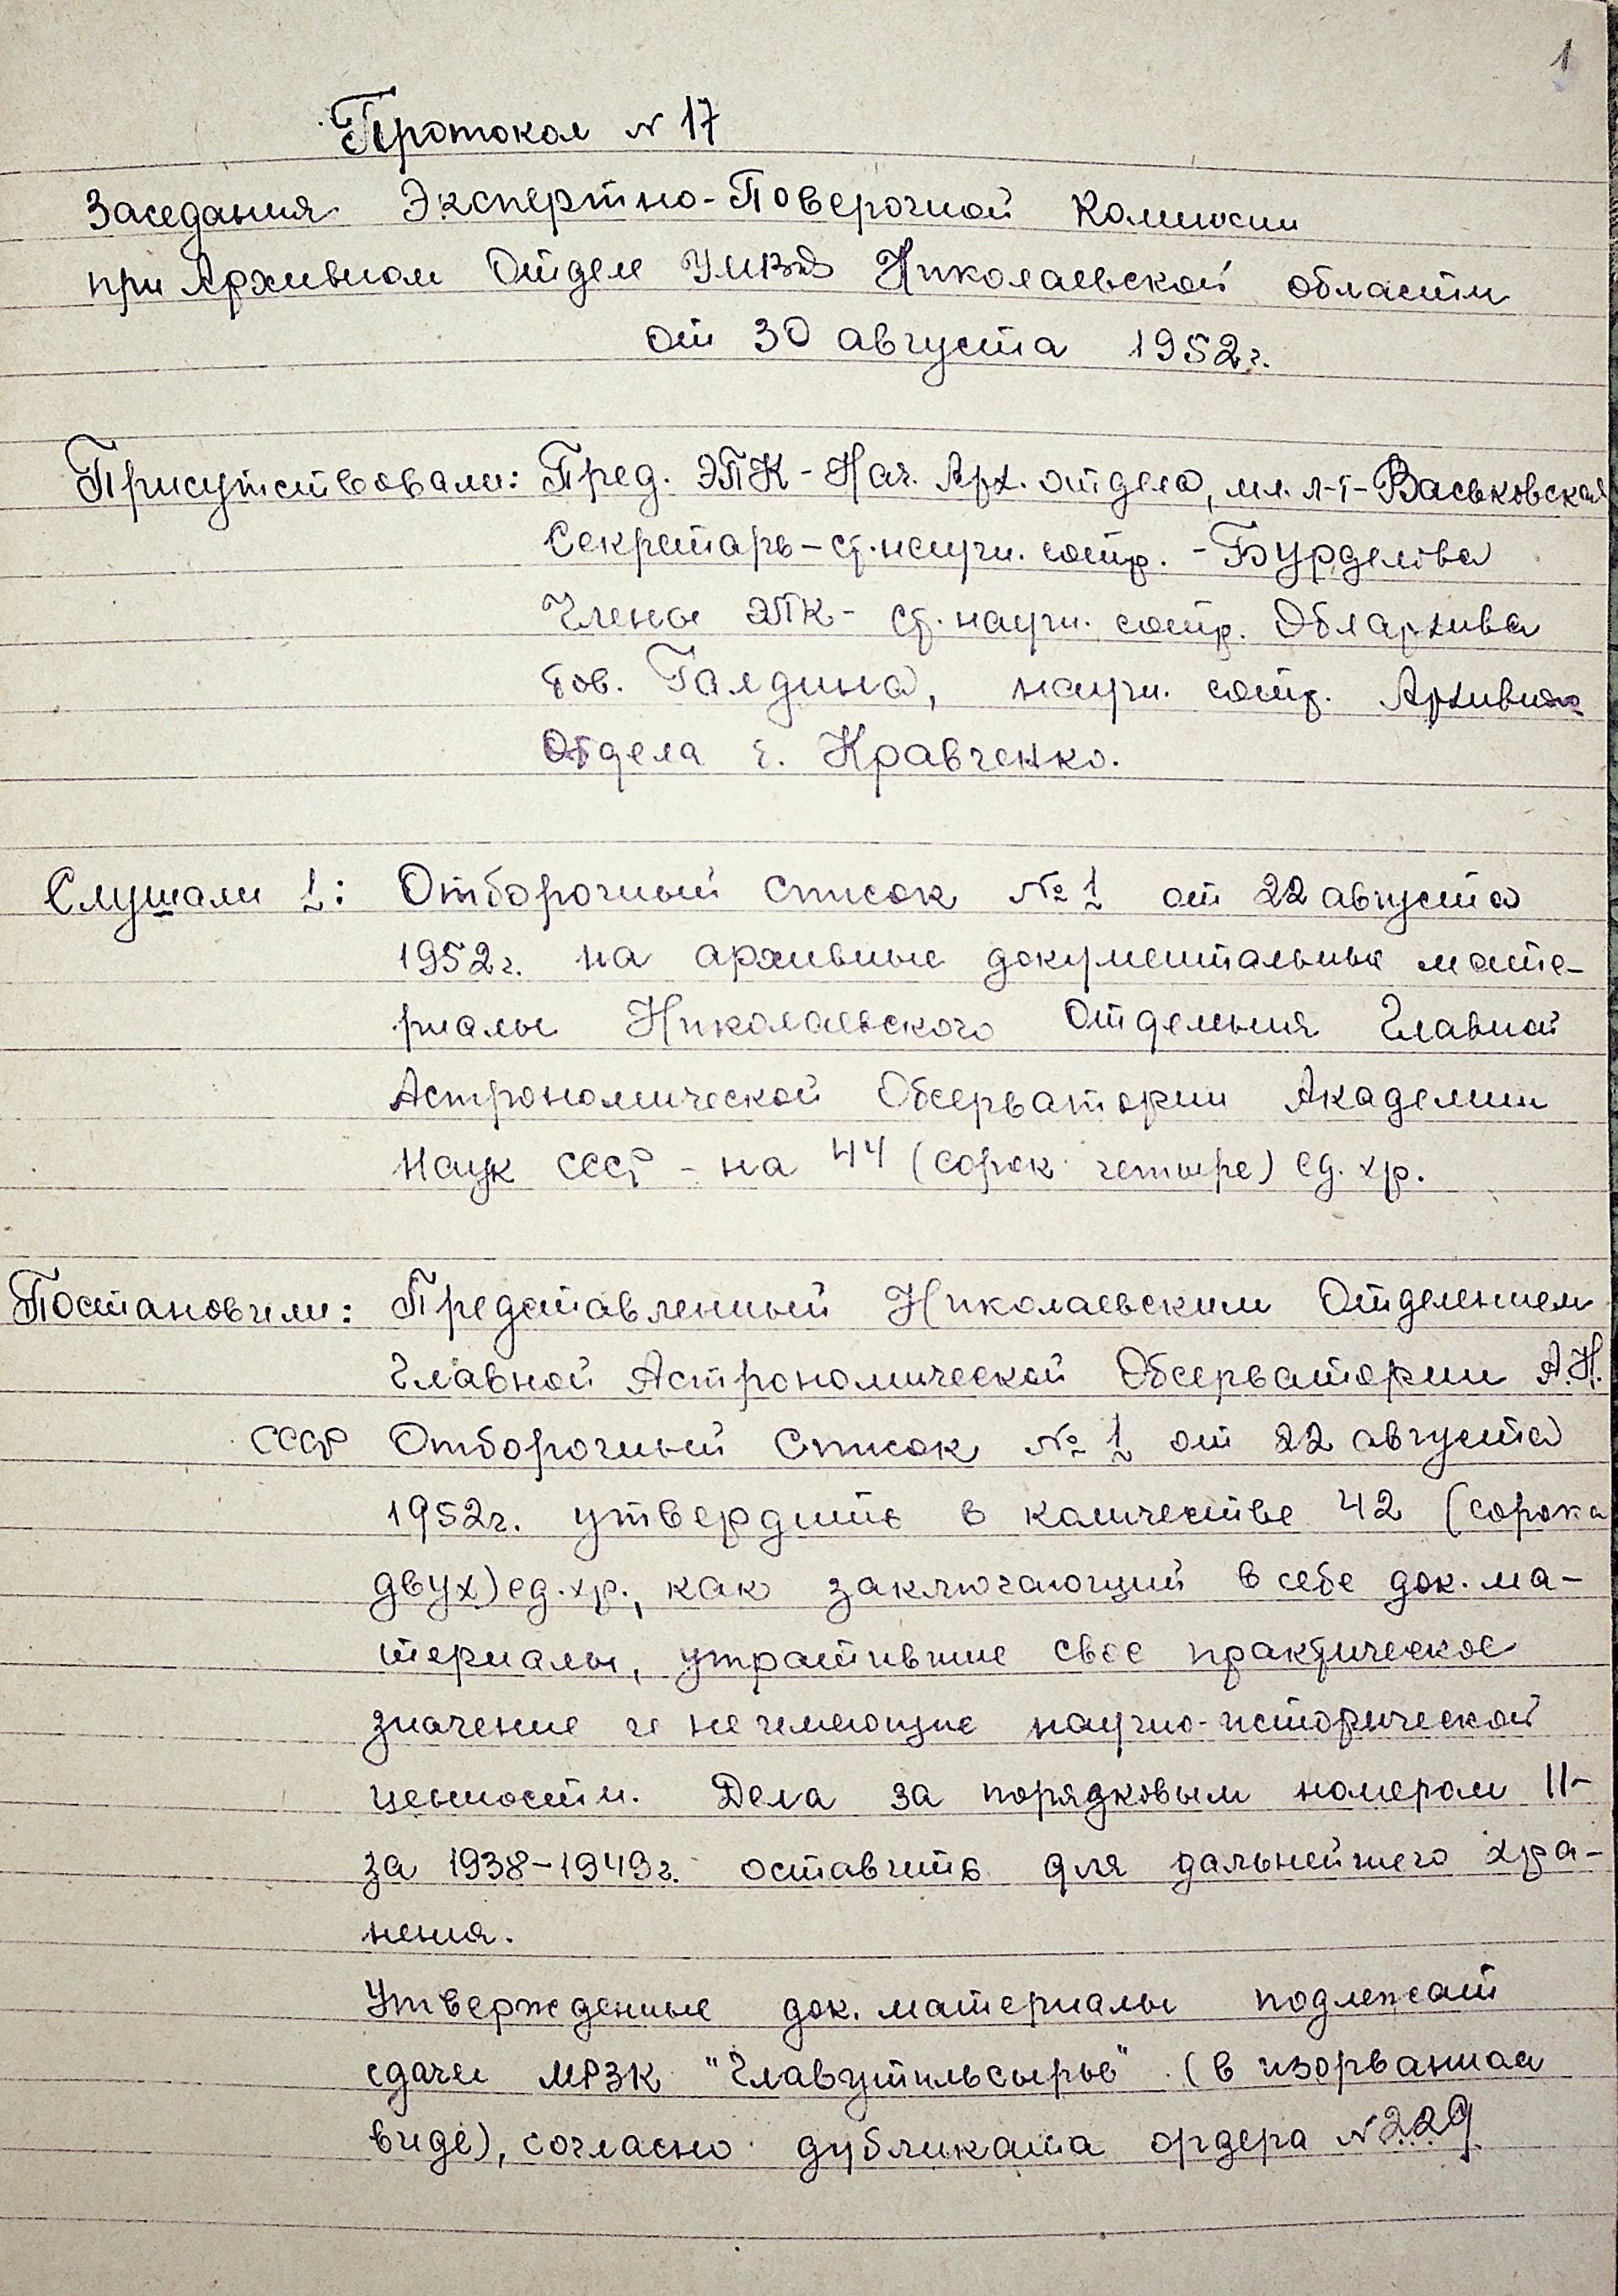 1
Протокол N 17
Заседания Экспертно-Поверочной Комиссии
при Архивном Отделе УМВД Николаевской области
от 30 августа 1952г.
Присутствовали: Пред. ЭПК - Нач. Арх. отдела, мл. л-т - Васьковская
Секретарь - ст. научн. сотр. - Бурделова
Члены ЭПК - ст. научн. сотр. Облархива
тов. Галдина, научн. сотр. Архивного
Отдела т. Кравченко.
Слушали 1: Отборочный список № 1 от 22 августа
1952г. на архивные документальные мате-
риалы Николаевского Отделения Главной
Астрономической Обсерватории Академии
Наук СССР - на 44 (сорок четыре) ед. хр.
Постановили: Представленный Николаевским Отделением
Главной Астрономической Обсерватории А.Н.
СССР Отборочный Список № 1 от 22 августа
1952г. утвердить в количестве 42 (сорока
двух) ед. хр., как заключающий в себе док. ма-
териалы, утратившие свое практическое
значение и не имеющие научно-исторической
ценности. Дела за порядковым номером 11-
за 1938-1949г. оставить для дальнейшего хра-
нения.
Утвержденные док. материалы подлежат
сдаче МРЗК "Главутильсырье" (в изорванном
виде), согласно дубликата ордера N 229